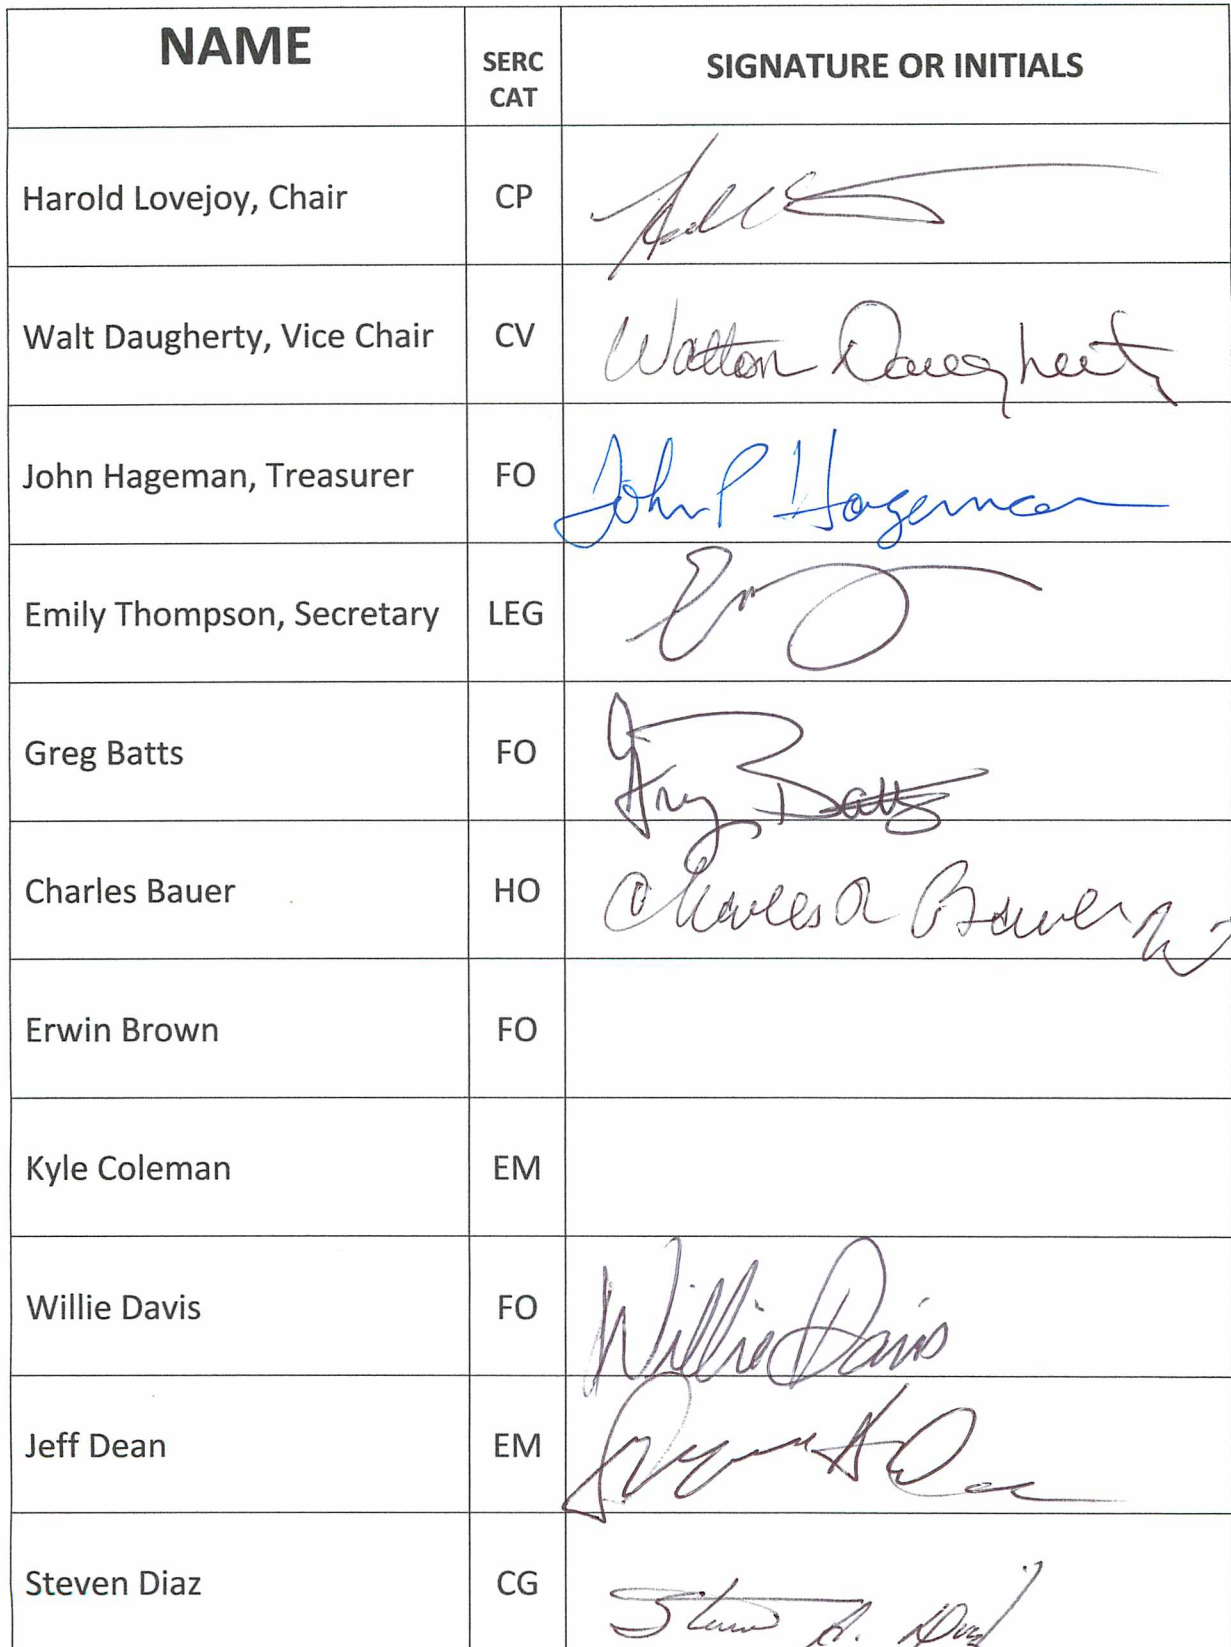 NAME SERC CAT SIGNATURE OR INITIALS
Harold Lovejoy, Chair CP
Walt Daugherty, Vice Chair CV Walton Daugherty
John Hageman, Treasurer FO John P Hageman
Emily Thompson, Secretary LEG
Greg Batts FO Greg Batts
Charles Bauer HO Charles R Bauer
Erwin Brown FO
Kyle Coleman EM
Willie Davis FO Willie Davis
Jeff Dean EM
Steven Diaz CG